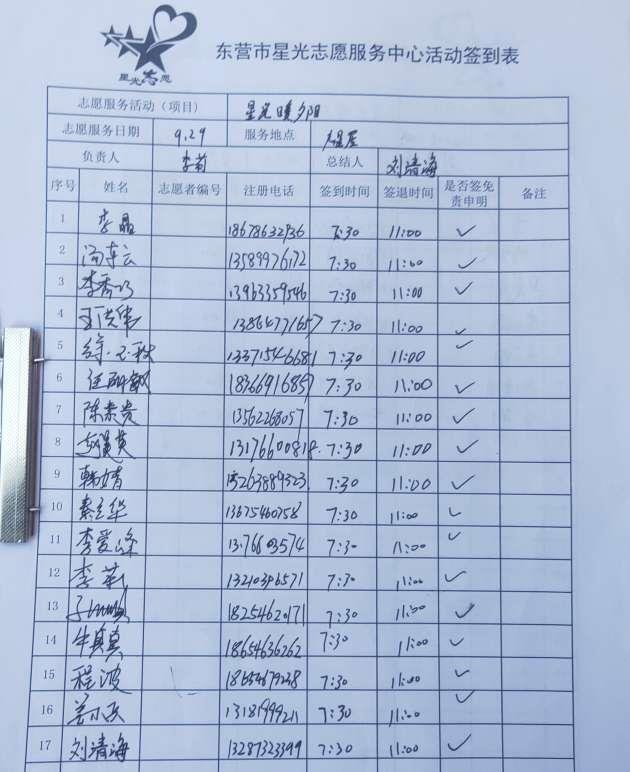 星光志愿
东营市星光志愿服务中心活动签到表
志愿服务活动（项目） 星光暖夕阳
志愿服务日期 9.29 服务地点
负责人 李莉 总结人 刘清海
序号 姓名 志愿者编号 注册电话 签到时间 签退时间 是否签免责申明 备注
1 李晶 18678632936 7:30 11:00 ✓
2 13589976172 7:30 11:00 ✓
3 李秀巧 13963359546 7:30 11:00 ✓
4 13864771657 7:30 11:00 ✓
5 13371546681 7:30 11:00 ✓
6 18366916857 7:30 11:00 ✓
7 陈素贵 13562268057 7:30 11:00 ✓
8 13176600818 7:30 11:00 ✓
9 韩婧 15263889323 7:30 11:00 ✓
10 秦立华 13675460758 7:30 11:00 ✓
11 李爱 7:30 11:00 ✓
12 李莉 13210396571 7:30 11:00 ✓
13 18254620171 7:30 11:00 ✓
14 牛真真 18654636262 7:30 11:00 ✓
15 程波 18654679238 7:30 11:00 ✓
16 13181999211 7:30 11:00 ✓
17 刘清海 13287323399 7:30 11:00 ✓